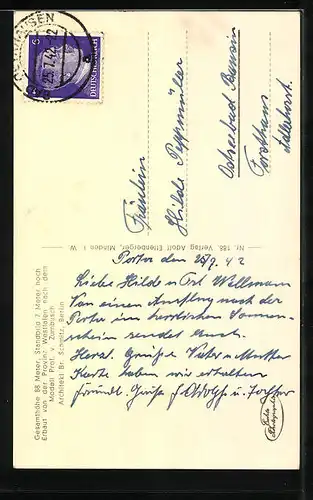 OEYNHAUSEN
25.7.42.-12
BAD
a
6
DEUTSCHES REICH
Fräulein
Hilde Peppmüller
Ostseebad Bansin
Forsthaus
Nr. 186. Verlag Adolf Ellenberger, Minden i. W.
Gesamthöhe 88 Meter, Standbild 7 Meter hoch
Erbaut von der Provinz Westfalen nach dem
Modell Prof. v. Zumbusch
Architekt Br. Schmitz, Berlin
Porta den 25/7. 42
Liebe Hilde u. Ort. Wellmann
Von einem Ausflug nach der
Porta im herrlichen Sonnen-
schein sendet Euch
Herzl. Grüße Vater u. Mutter
Karte haben wir erhalten
Freundl. Grüße
Echte
Photographie